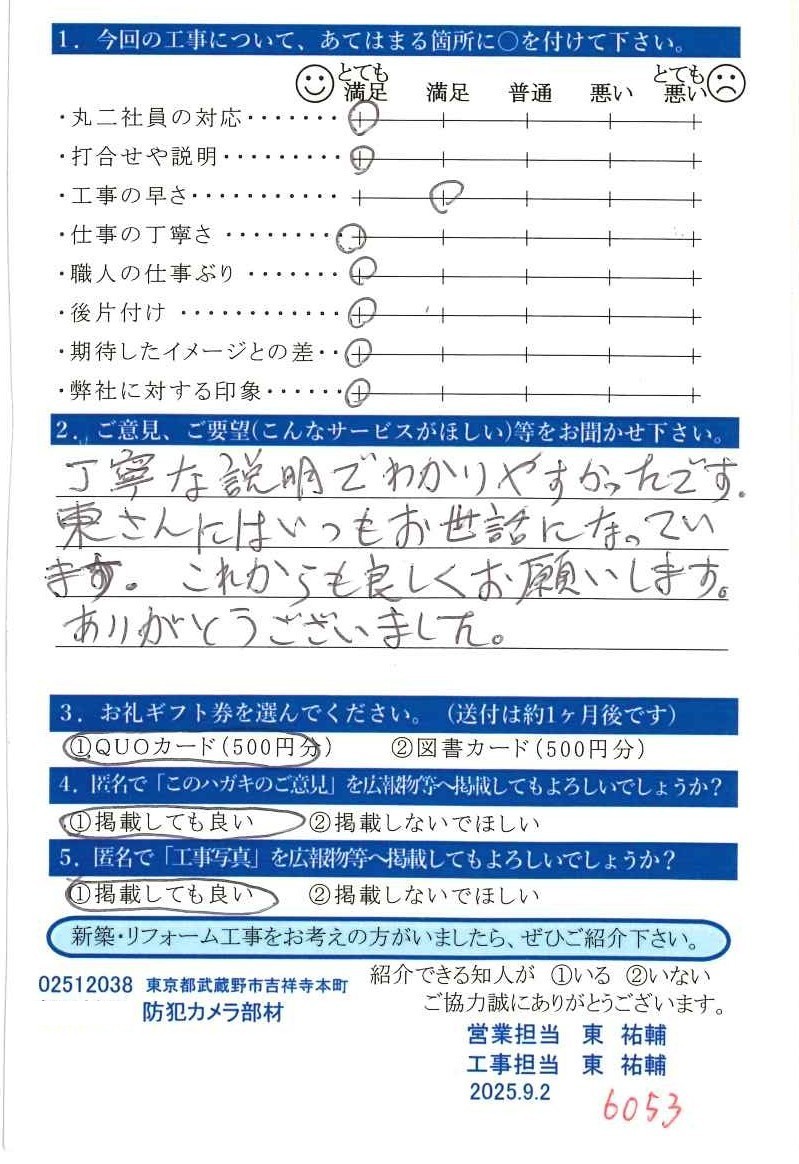 1．今回の工事について、あてはまる箇所に○を付けて下さい。
とても満足 満足 普通 悪い とても悪い
・丸二社員の対応・・・・・・・
・打合せや説明・・・・・・・・・
・工事の早さ・・・・・・・・・・・
・仕事の丁寧さ・・・・・・・・・
・職人の仕事ぶり・・・・・・・
・後片付け・・・・・・・・・・・・
・期待したイメージとの差・・
・弊社に対する印象・・・・・・
2．ご意見、ご要望(こんなサービスがほしい)等をお聞かせ下さい。
丁寧な説明でわかりやすかったです。
東さんにはいつもお世話になってい
ます。これからも良しくお願いします。
ありがとうございました。
3．お礼ギフト券を選んでください。（送付は約1ヶ月後です）
①QUOカード(500円分) ②図書カード(500円分)
4．匿名で「このハガキのご意見」を広報物等へ掲載してもよろしいでしょうか？
①掲載しても良い ②掲載しないでほしい
5．匿名で「工事写真」を広報物等へ掲載してもよろしいでしょうか？
①掲載しても良い ②掲載しないでほしい
新築・リフォーム工事をお考えの方がいましたら、ぜひご紹介下さい。
紹介できる知人が ①いる ②いない
02512038 東京都武蔵野市吉祥寺本町
ご協力誠にありがとうございます。
防犯カメラ部材
営業担当 東 祐輔
工事担当 東 祐輔
2025.9.2
6053